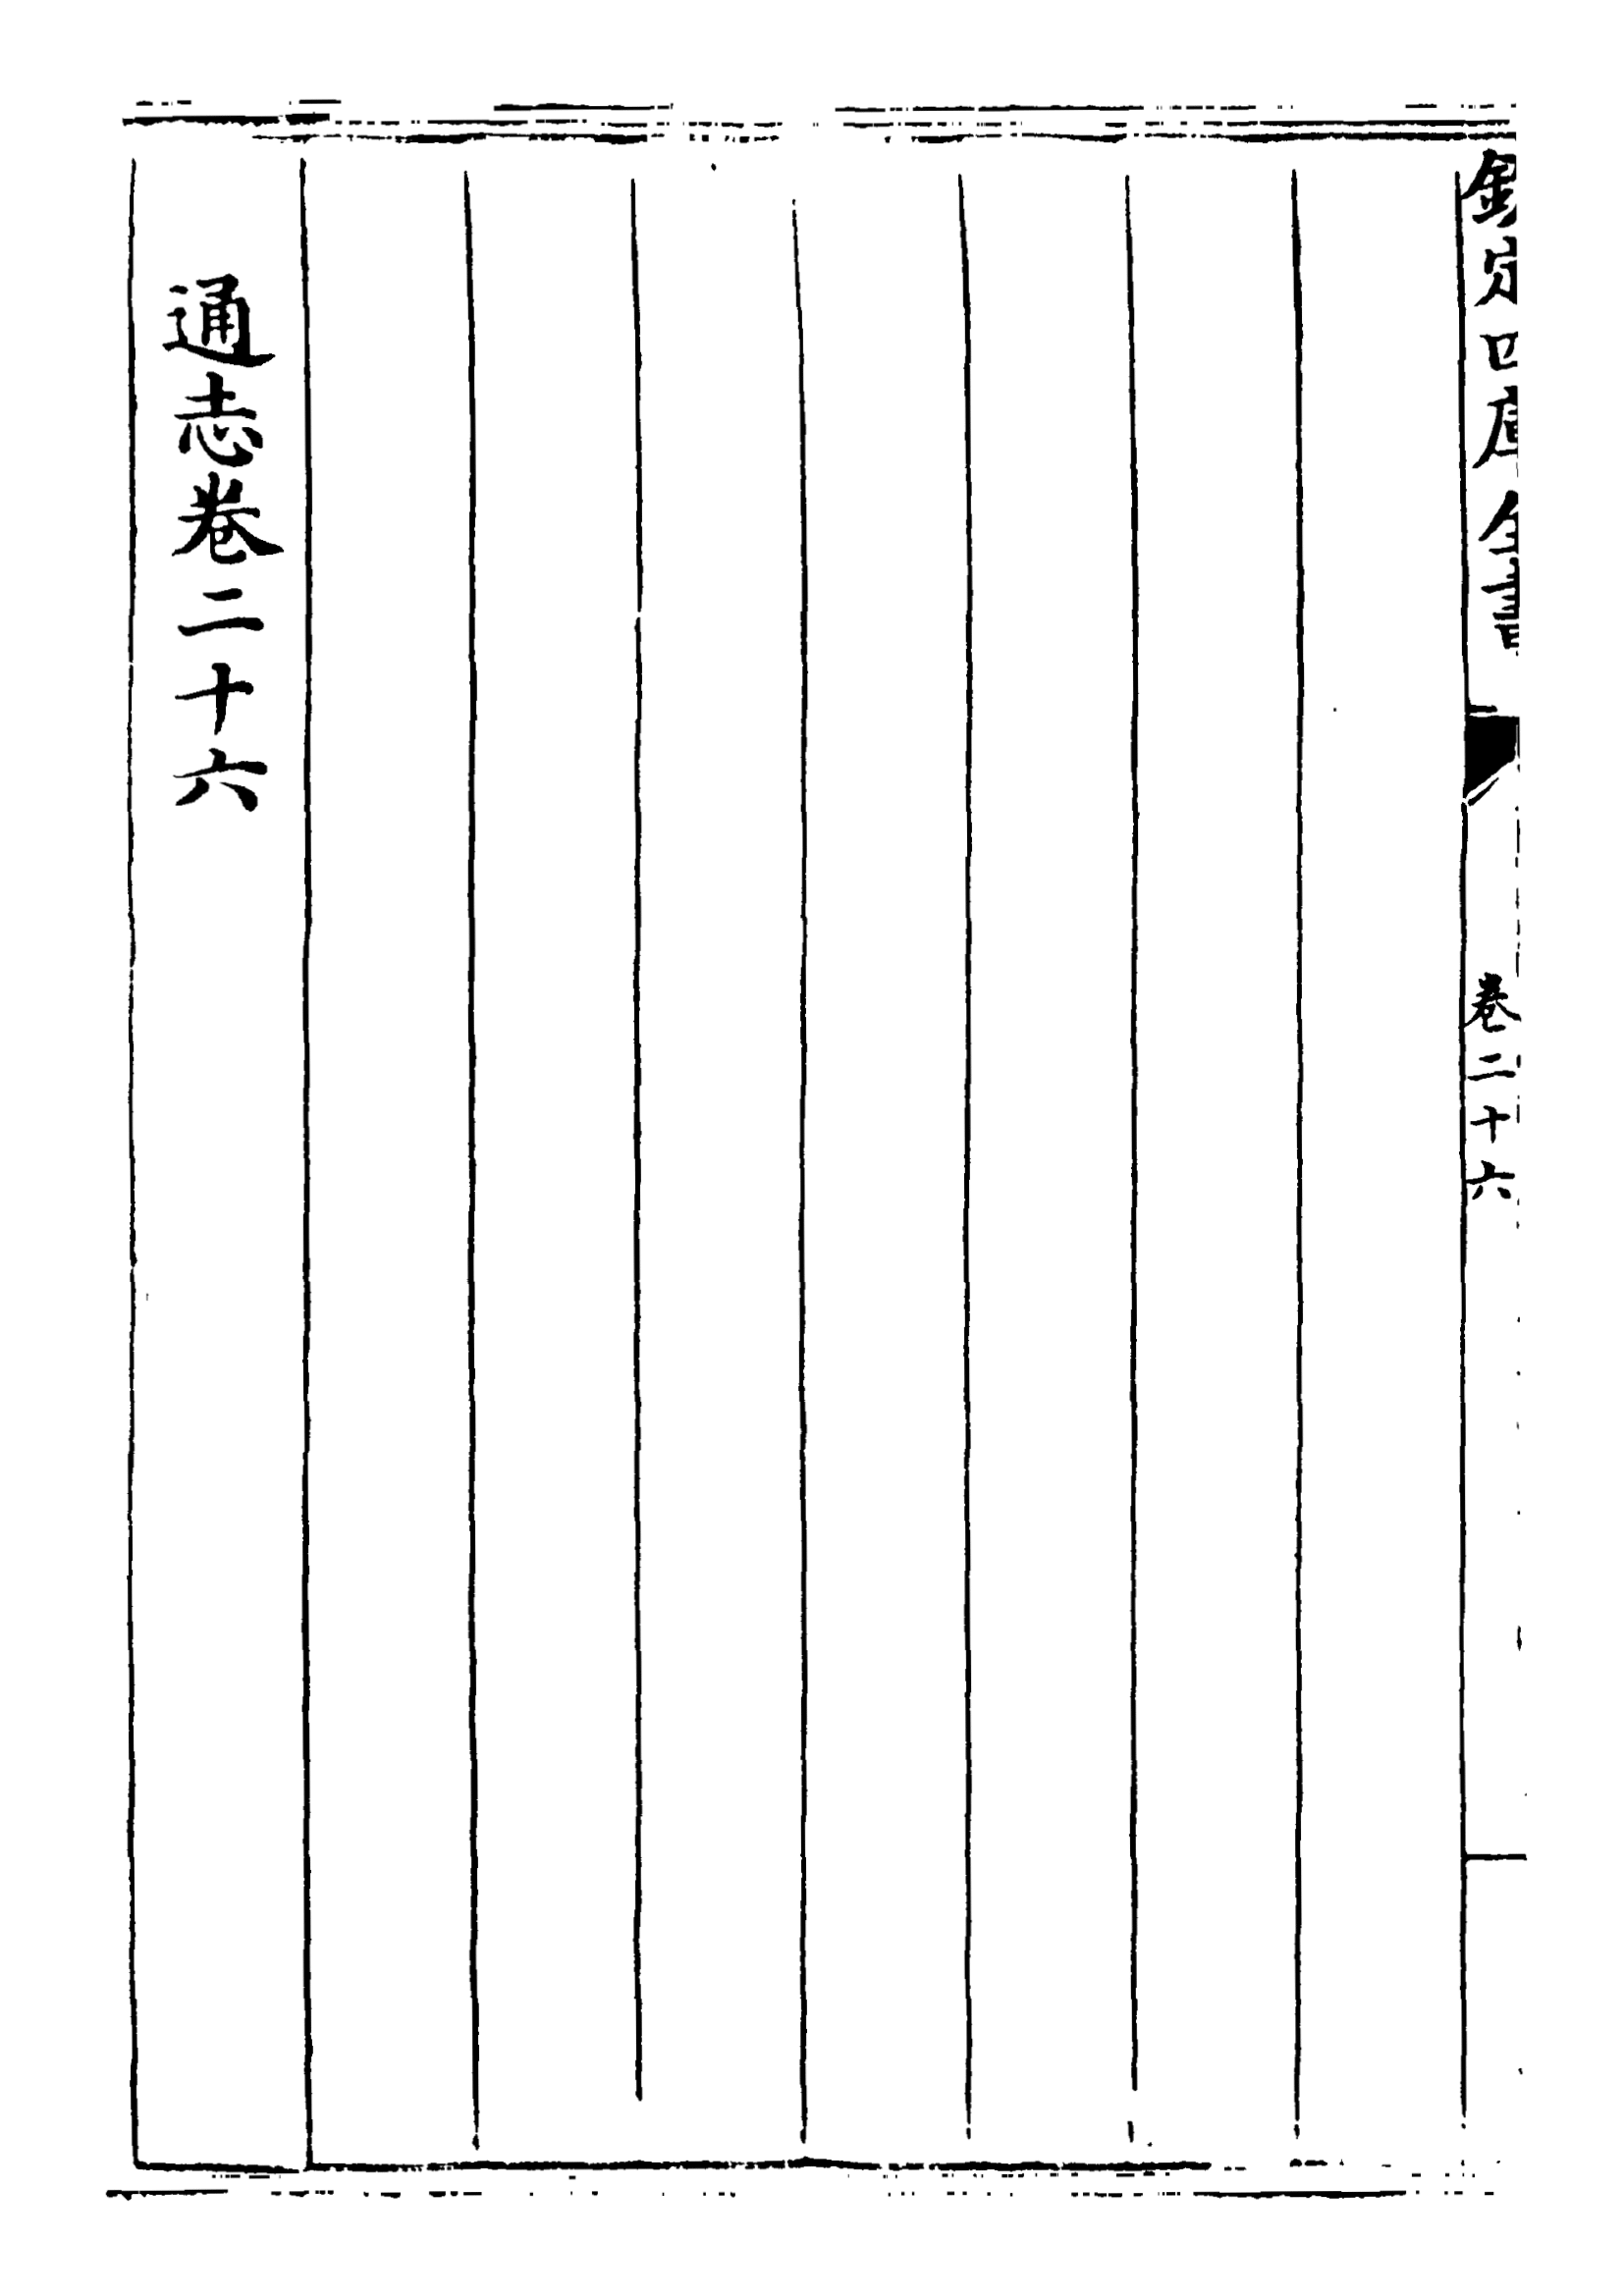 欽定四庫全書
卷二十六
通志卷二十六